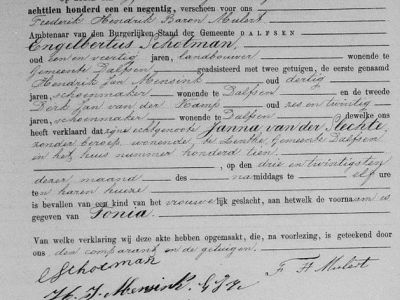 achttien honderd een en negentig, verscheen voor ons
Frederik Hendrik Baron Mulert
Ambtenaar van den Burgerlijken Stand der Gemeente DALFSEN
Engelbertus Schotman,
oud een en veertig jaren, landbouwer wonende te
Gemeente Dalfsen geadsisteerd met twee getuigen, de eerste genaamd
Hendrik Jan Mensink oud dertig
jaren, schoenmaker wonende te Dalfsen en de tweede
Derk Jan van der Kamp oud zes en twintig
jaren, schoenmaker wonende te Dalfsen dewelke ons
heeft verklaard dat zijne echtgenoote Janna van der Vechte,
zonder beroep, wonende te Lenthe, Gemeente Dalfsen
in het huis nummer honderd tien
, op den drie en twintigsten
dezer maand des namiddags te elf ure
ten haren huize
is bevallen van een kind van het vrouwelijk geslacht, aan hetwelk de voornaam is
gegeven van Tonia.
Van welke verklaring wij deze akte hebben opgemaakt, die, na voorlezing, is geteekend door
ons, den comparant en de getuigen.
E Schotman
F H Mulert
H. J. Mensink